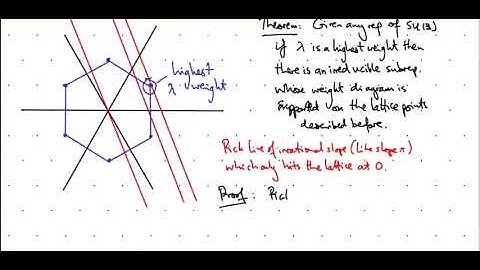 highest
λ weight
Theorem: Given any rep of SU(3)
if λ is a highest weight then
there is an irreducible subrep.
whose weight diagram is
supported on the lattice points
described before.
Pick line of irrational slope (like slope π)
which only hits the lattice at 0.
Proof: Pick